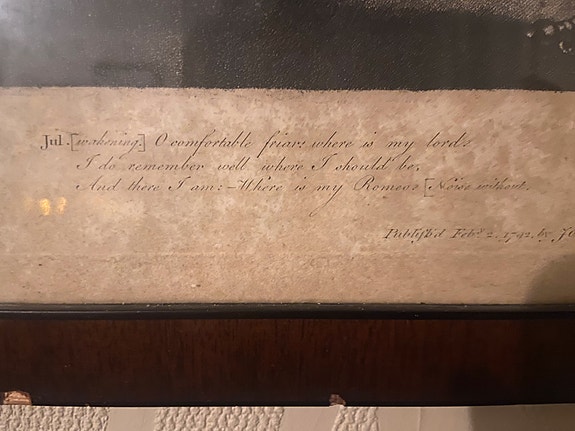 Jul. [wakening.] O comfortable friar: where is my lord?
I do remember well where I should be,
And there I am:—Where is my Romeo? [Noise without.
Publish'd Feb.y 2. 1792. by J